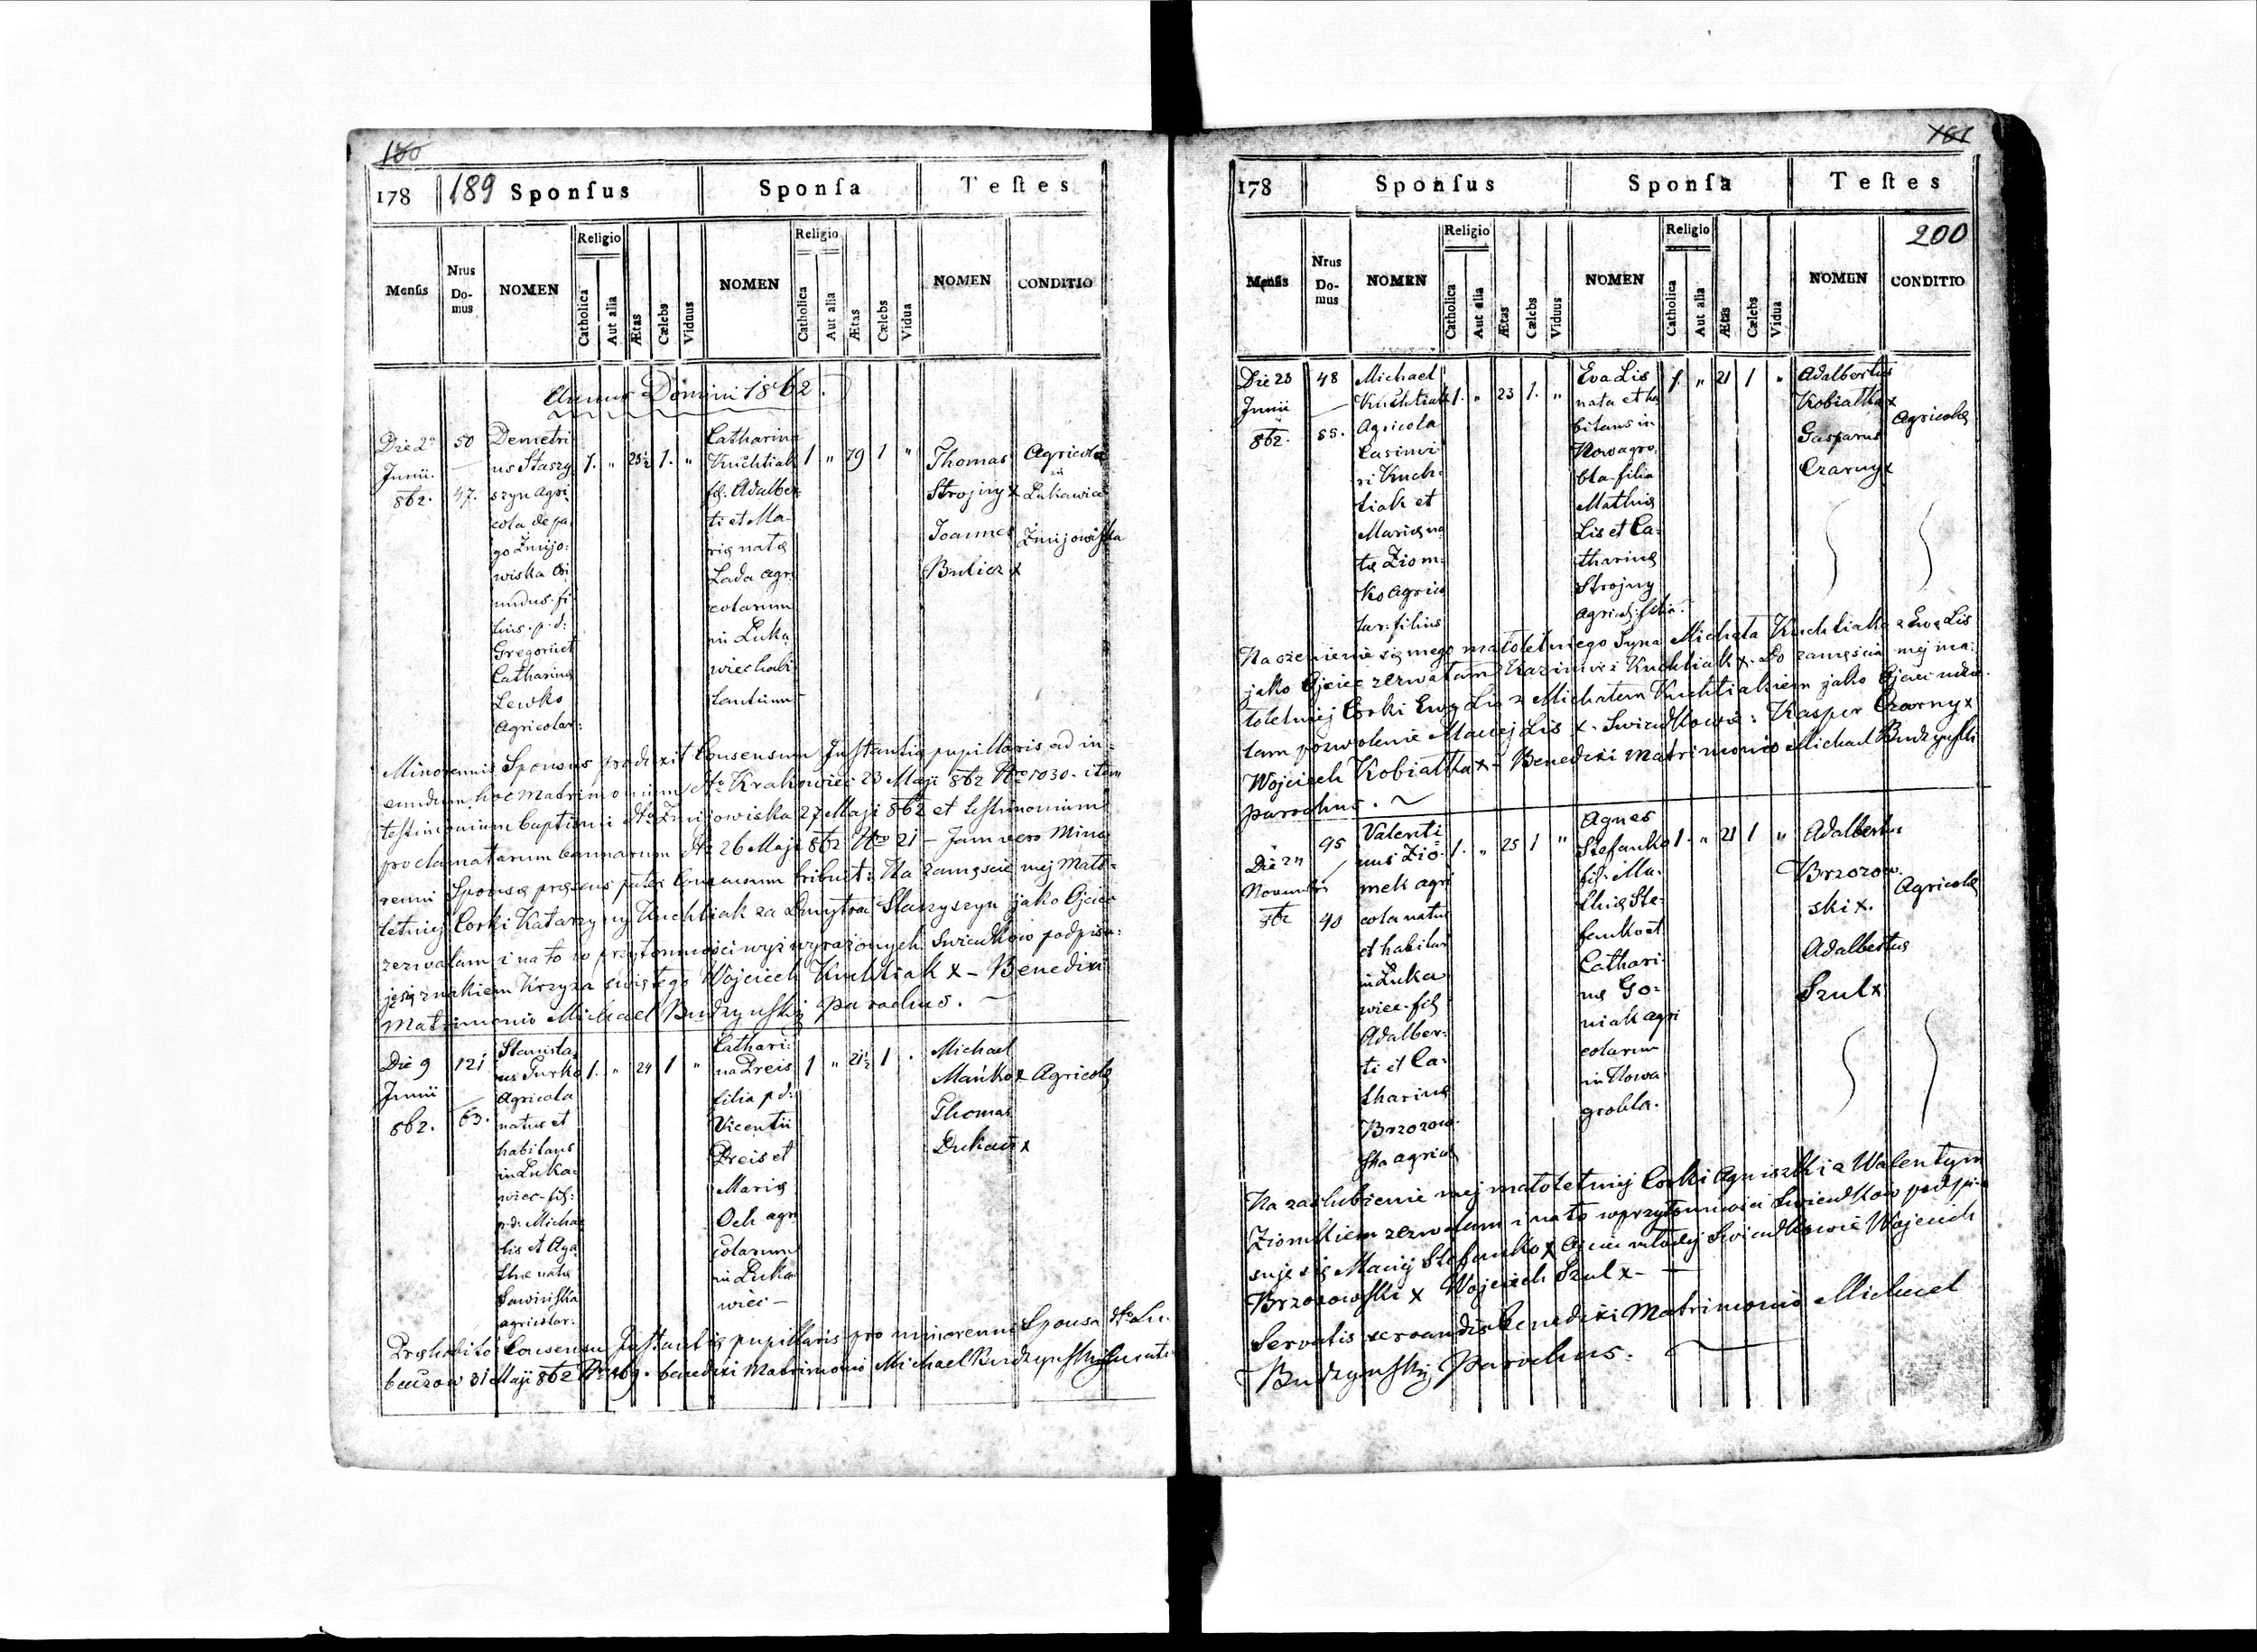 180
178 189 Sponſus Sponſa Teſtes
Menſis Nrus Do-mus NOMEN Religio Catholica Aut alia Ætas Cælebs Viduus NOMEN Religio Catholica Aut alia Ætas Cælebs Vidua NOMEN CONDITIO
Annus Domini 1862.
Die 2
Junii
862.
50
47.
Demetri
us Staszy
szyn Agri
cola de pa
go Żmijo:
wiska
undus. fi
lius. p. d:
Gregorii et
Catharinæ
Lewko
Agricolar:
1. " 1. "
Catharina
Kuchtiak
fil. Adalber
ti et Ma-
riæ natæ
Lada agri
colarum
in Łuka
wiec habi
tantium
1 " 19 1 "
Thomas
Strojny x
Joannes
Bulicz x
Agricola
Łukawiec
Żmijowiska
Minorennis Sponsus produxit Consensum Instantiæ pupillaris ad in-
eundum hoc Matrimonium dto Krakowiec 23 Maji 862 Nro 1030. item
testimonium baptismi dto Żmijowiska 27 Maji 862 et testimonium
proclamatarum bannorum dto 26 Maji 862 Nro 21 – Jam vero Mino
renni Sponsæ præsens pater Consensum tribuit: Na zamęście mej mało-
letniej Corki Katarzyny Kuchtiak za Dmytra Staszyszyn jako Ojciec
zezwalam i na to w przytomności wyż wyrażonych swiadkow podpisu:
ję się znakiem Krzyża swiętego Wojciech Kuchtiak x – Benedixi
Matrimonio Michael Budzynski Parochus.
Die 9
Junii
862.
121
63.
Stanisla
us Turko
Agricola
natus et
habitans
in Łuka:
wiec – fil:
p. d. Micha
lis et Aga
thæ natæ
Sawińska
agricolar:
1. " 24 1 "
Cathari:
na Dreis
filia p. d:
Vicentii
Dreis et
Mariæ
Och agri
colarum
in Łuka
wiec –
1 " 21½ 1 .
Michael
Mańko x
Thomas
Dukacz x
Agricolæ
Præhabito Consensu Instantiæ pupillaris pro minorenni Sponsa dto Lu-
baczow 31 Maji 862 benedixi Matrimonio Michael Budzynski Curatus
181
178 Sponſus Sponſa Teſtes
200
Menſis Nrus Do-mus NOMEN Religio Catholica Aut alia Ætas Cælebs Viduus NOMEN Religio Catholica Aut alia Ætas Cælebs Vidua NOMEN CONDITIO
Die 23
Junii
862.
48
55.
Michael
Kuchtiak
Agricola
Casimi
ri Kuch:
tiak et
Mariæ na
tæ Ziom:
ko Agrico
lar: filius
1. " 23 1. "
Eva Lis
nata et ha
bitans in
Nowagro
bla filia
Mathiæ
Lis et Ca:
tharinæ
Strojny
agricol: filia.
1. " 21 1 "
Adalbertus
Kobiałka x
Gasparus
Czarny x
Agricolæ
Na ożenienie się mego małoletniego Syna Michała Kuchtiaka z Ewą Lis
jako Ojciec zezwalam Kazimierz Kuchtiak x. Do zamęścia mej ma:
łoletniej Corki Ewy Lis z Michałem Kuchtiakiem jako Ojciec udzie-
lam pozwolenie Maciej Lis x. Swiadkowie: Kasper Czarny x
Wojciech Kobiałka x – Benedixi Matrimonio Michael Budzynski
Parochus.
Die 24
Novembris
862
95
40
Valenti
nus Zio:
mek agri
cola natus
et habitans
in Łuka
wiec – fil
Adalber:
ti et Ca:
tharinæ
Brzozow:
ska agricol
1. " 25 1 "
Agnes
Stefanko
fil. Ma:
thiæ Ste-
fanko et
Cathari
næ Go:
niak agri
colarum
in Nowa
grobla.
1. " 21 1 "
Adalbertus
Brzozow:
ski x.
Adalbertus
Szul x
Agricolæ
Na zaślubienie mej małoletniej Corki Agnieszki z Walentym
Ziomkiem zezwalam i na to w przytomności Swiadkow podpi-
suje się Maciej Stefanko x Ojciec młodej Swiadkowie Wojciech
Brzozowski x Wojciech Szul x –
Servatis servandis benedixi Matrimonio Michael
Budzynski Parochus.